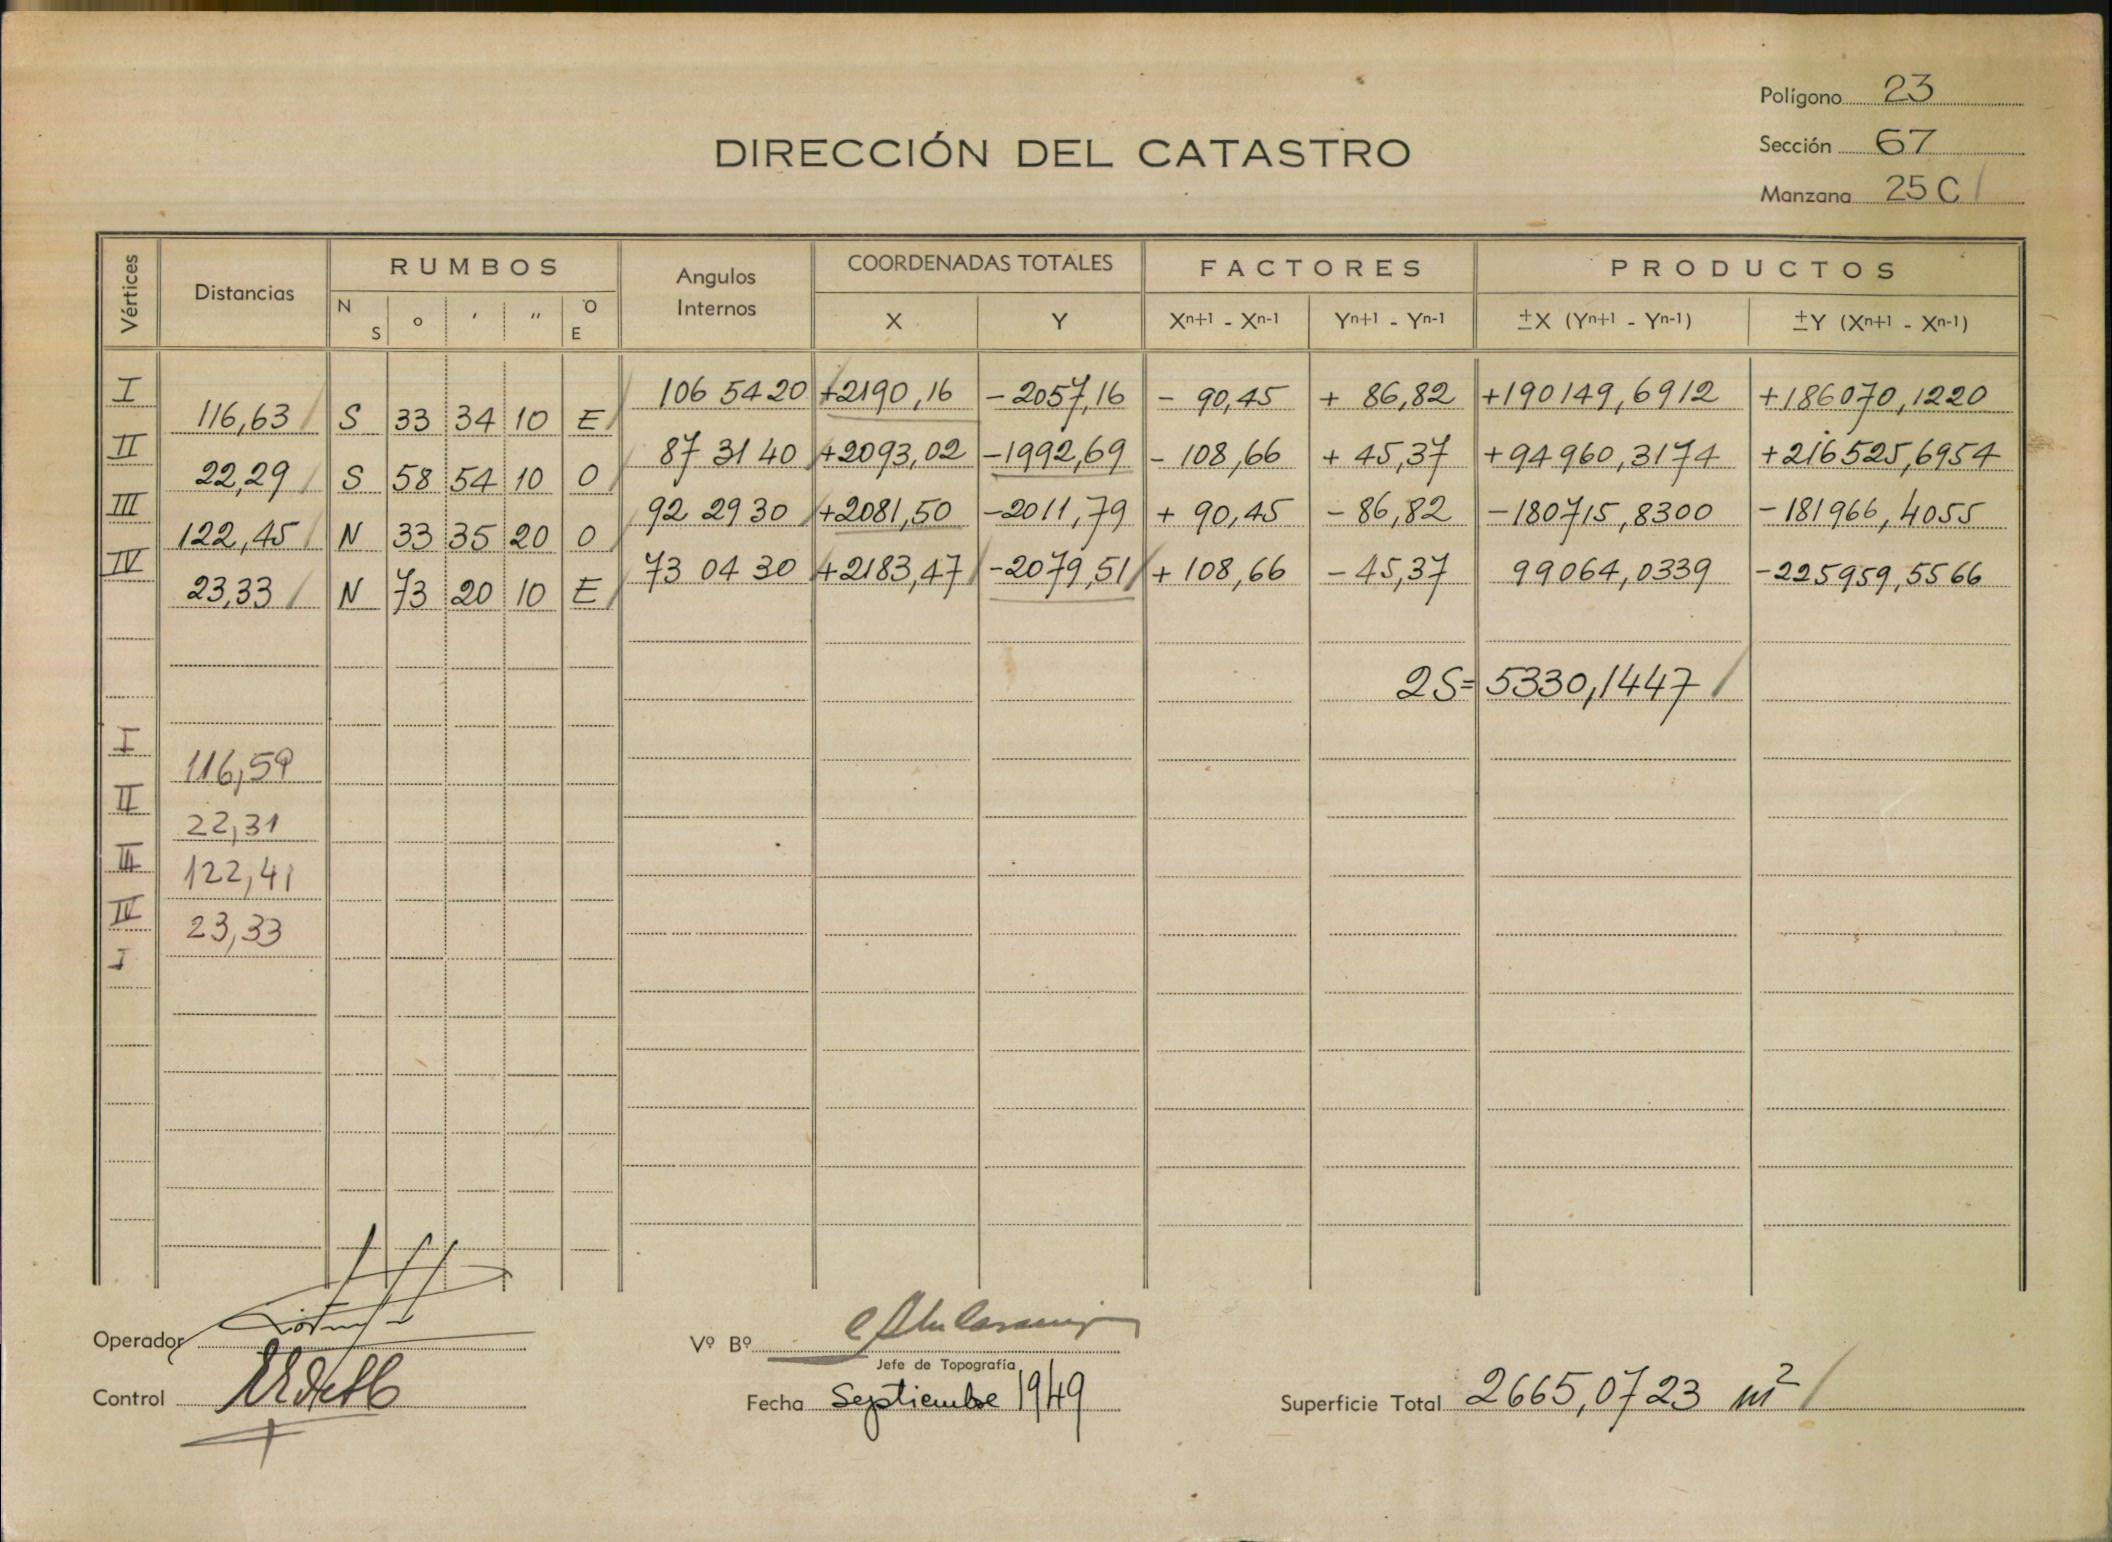 Polígono 23
DIRECCIÓN DEL CATASTRO
Sección 67
Manzana 25 C
Vértices Distancias RUMBOS Angulos Internos COORDENADAS TOTALES FACTORES PRODUCTOS
N S ° ′ ″ O E X Y Xn+1 - Xn-1 Yn+1 - Yn-1 ±X (Yn+1 - Yn-1) ±Y (Xn+1 - Xn-1)
I 106 54 20 +2190,16 -2057,16 - 90,45 + 86,82 +190149,6912 +186070,1220
116,63 S 33 34 10 E
II 87 31 40 +2093,02 -1992,69 - 108,66 + 45,37 +94960,3174 +216525,6954
22,29 S 58 54 10 O
III 92 29 30 +2081,50 -2011,79 + 90,45 - 86,82 -180715,8300 -181966,4055
122,45 N 33 35 20 O
IV 73 04 30 +2183,47 -2079,51 + 108,66 - 45,37 99064,0339 -225959,5566
23,33 N 73 20 10 E
2S= 5330,1447
I
116,59
II
22,31
III
122,41
IV
23,33
I
Operador
Vº Bº
Jefe de Topografía
Control
Fecha Septiembre 1949
Superficie Total 2665,0723 m²